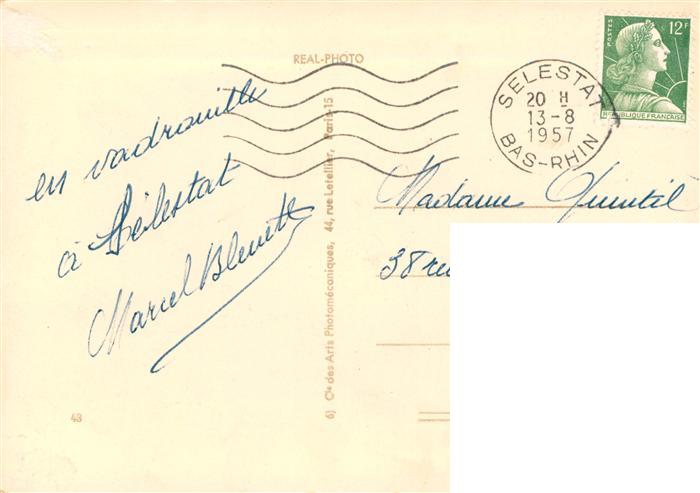 REAL-PHOTO
en vadrouille
à Sélestat
Marcel
43
6) Cie des Arts Photomécaniques, 44, rue Letellier, Paris-15
POSTES
12F
REPUBLIQUE FRANÇAISE
SELESTAT
20 H
13-8
1957
BAS-RHIN
Madame Quintil
38 rue